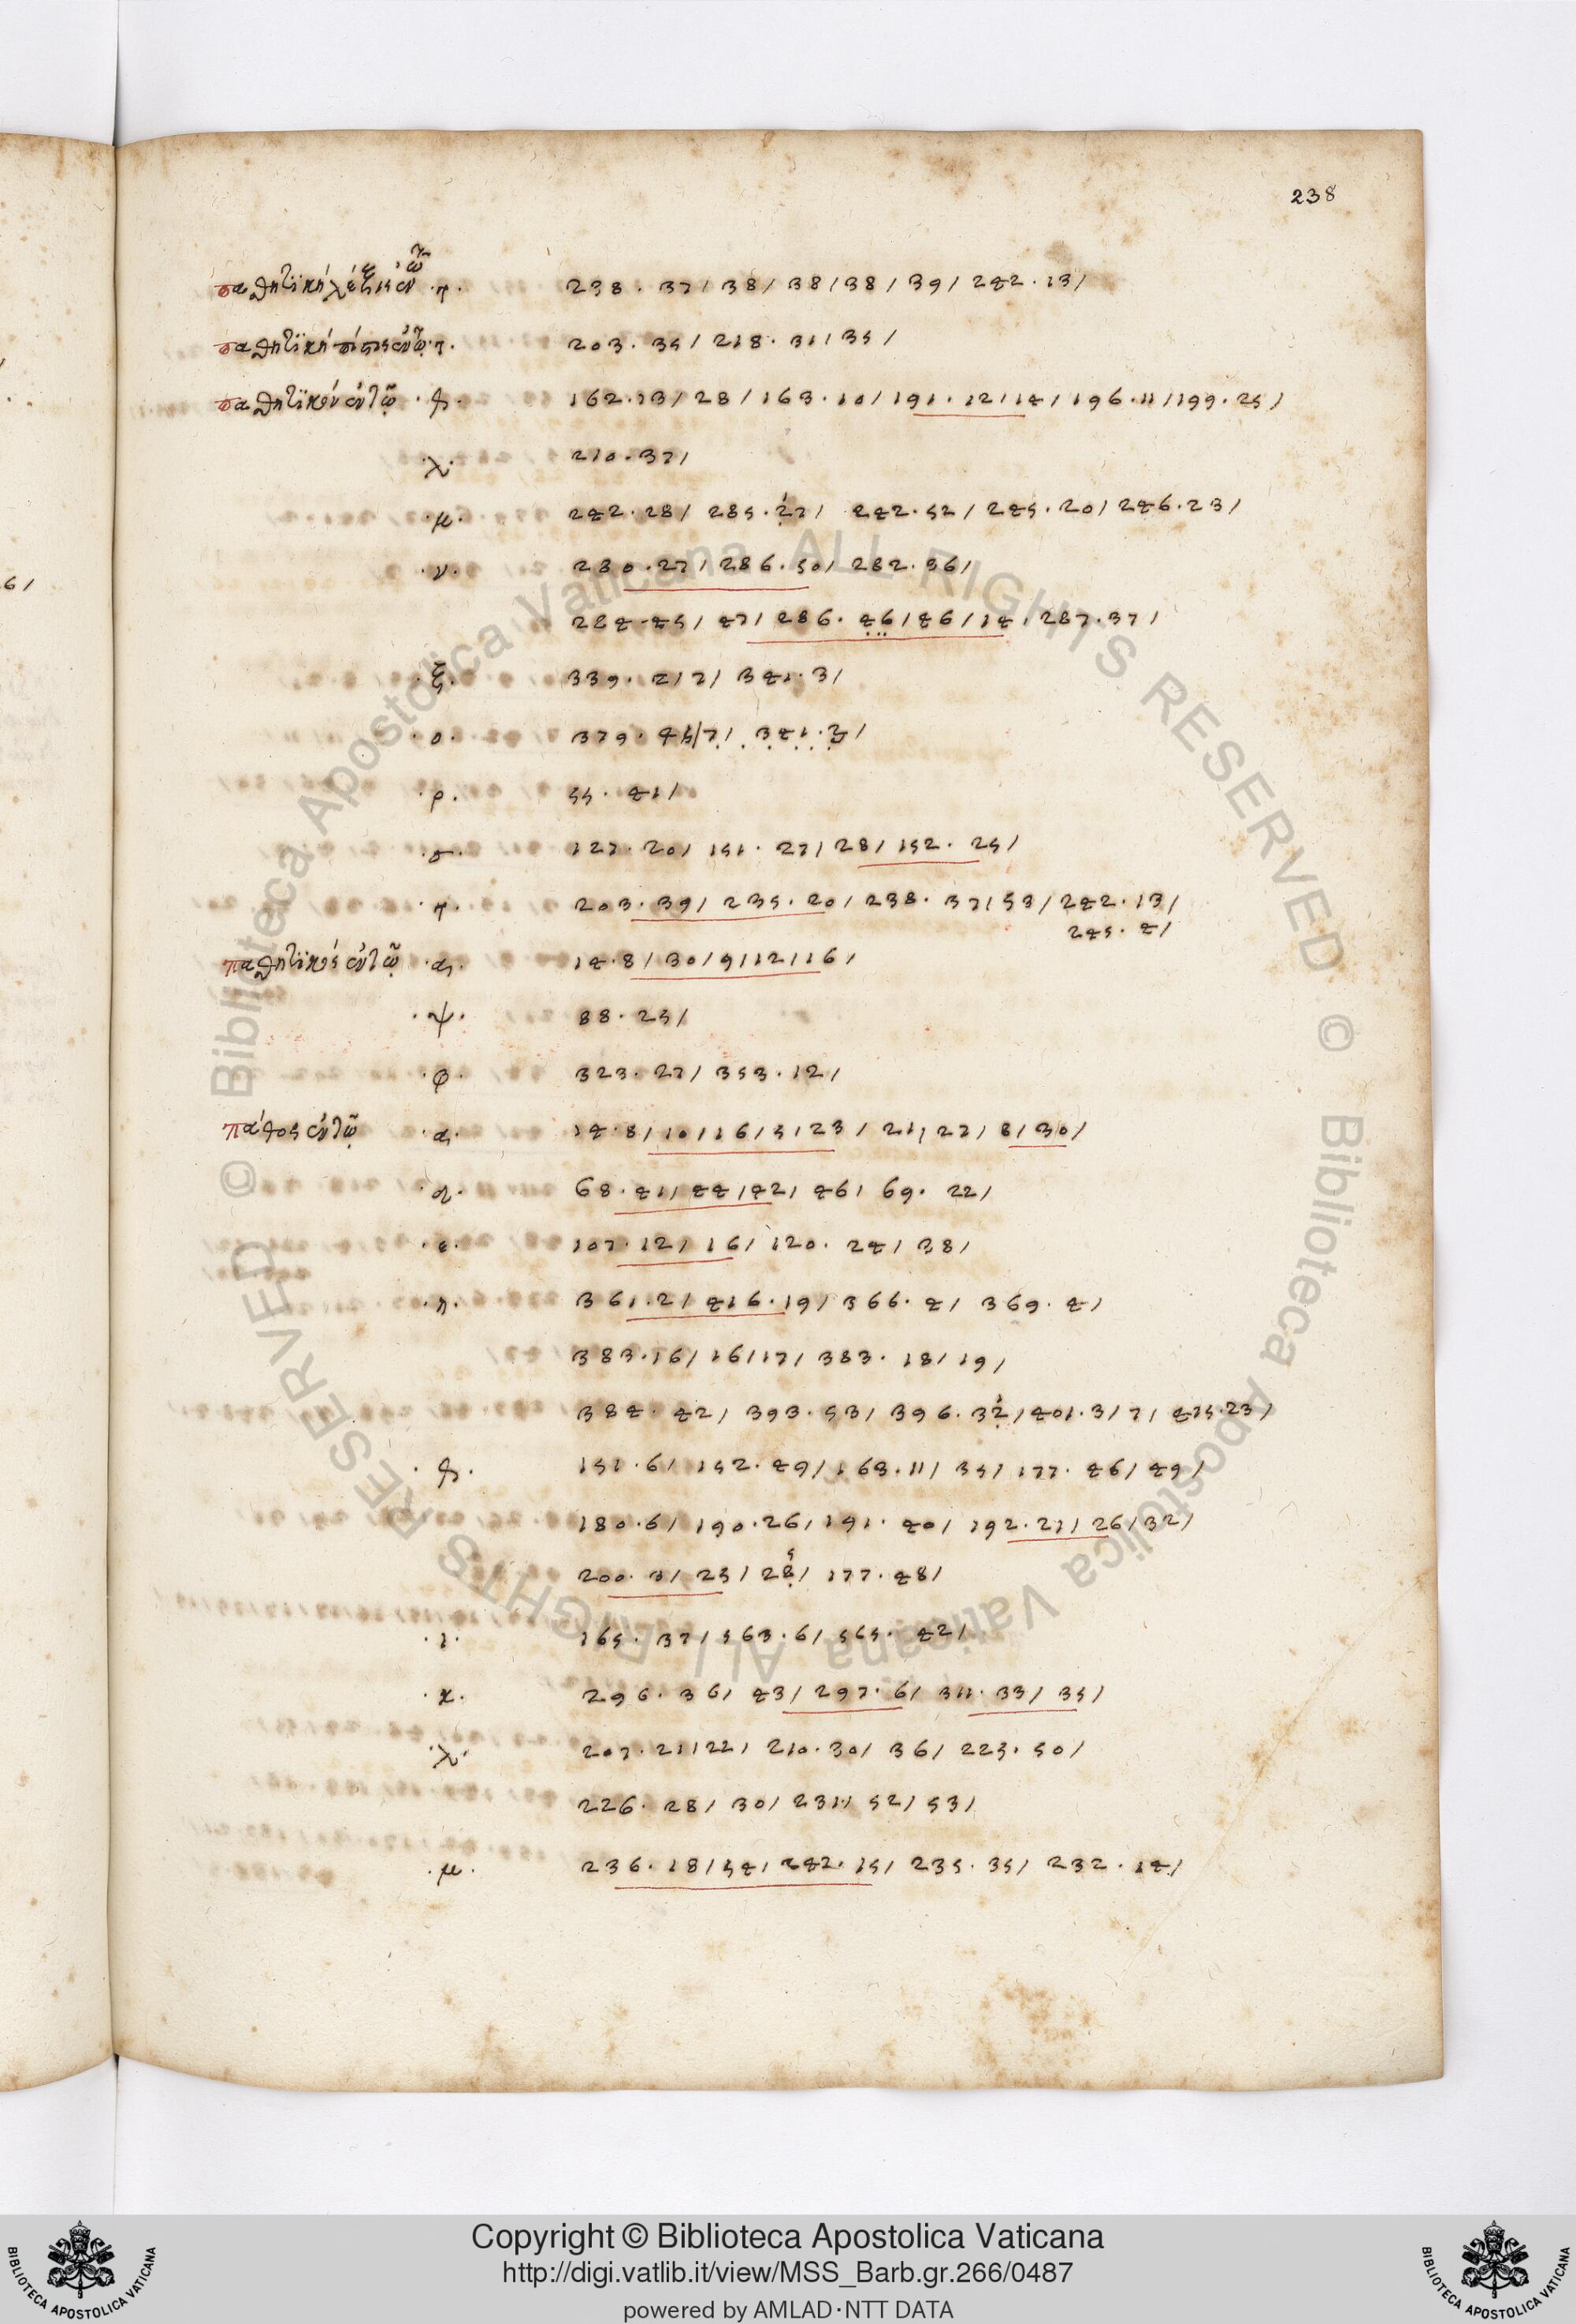 238
παθητικὴ λέξις ἐν τῶ ·τ· 238 · 37 / 38 / 38 / 38 / 39 / 242 · 13 /
παθητικὴ πίστις ἐν τῶ ·τ· 203 · 35 / 218 · 31 / 35 /
παθητικὸν ἐν τῷ 162 · 13 / 28 / 163 · 10 / 191 · 12 / 14 / 196 · 11 / 199 · 25 /
·λ· 210 · 37 /
·μ· 242 · 28 / 285 · / 242 · 52 / 245 · 20 / 246 · 23 /
·ν· 280 · 27 / 286 · 50 / 282 · 36 /
284 · 45 / 47 / 286 · 46 / 46 / 14 / 287 · 37 /
·ξ· 339 · 2 / 7 / 341 · 3 /
·ο· 379 · / 7 / 341 · 3 /
·ρ· 55 · 41 /
·σ· 127 · 20 / 151 · 27 / 28 / 152 · 25 /
·τ· 203 · 39 / 235 · 20 / 238 · 37 / 53 / 242 · 13 /
245 · 4 /
παθητικὸς ἐν τῷ ·α· 14 · 8 / 30 / 9 / 12 / 16 /
·ψ· 88 · 25 /
·φ· 323 · 27 / 353 · 12 /
πάθος ἐν τῷ ·α· 14 · 8 / 10 / 16 / 5 / 23 / 21 / 27 / 8 / 30 /
68 · 41 / 44 / 42 / 46 / 69 · 22 /
·ε· 107 · 12 / 16 / 120 · 24 / 38 /
·η· 361 · 2 / 416 · 19 / 366 · 4 / 369 · 4 /
383 · 16 / 16 / 17 / 383 · 18 / 19 /
384 · 42 / 393 · 53 / 396 · / 401 · 3 / 7 / 415 · 23 /
151 · 6 / 152 · 49 / 163 · 11 / 35 / 177 · 46 / 49 /
180 · 6 / 190 · 26 / 191 · 40 / 192 · 21 / 26 / 32 /
200 · 3 / 25 / 28 / 177 · 48 /
·ι· 165 · 37 / 563 · 6 / 565 · 42 /
·κ· 296 · 36 / 43 / 297 · 6 / 311 · 33 / 35 /
·λ· 207 · 21 / 22 / 210 · 30 / 36 / 225 · 50 /
226 · 28 / 30 / 231 · 52 / 53 /
·μ· 236 · 18 / 54 / 242 · 15 / 235 · 35 / 232 · 14 /
Copyright © Biblioteca Apostolica Vaticana
http://digi.vatlib.it/view/MSS_Barb.gr.266/0487
powered by AMLAD·NTT DATA
© Biblioteca Apostolica Vaticana ALL RIGHTS RESERVED
© Biblioteca Apostolica Vaticana ALL RIGHTS RESERVED
BIBLIOTECA APOSTOLICA VATICANA
BIBLIOTECA APOSTOLICA VATICANA